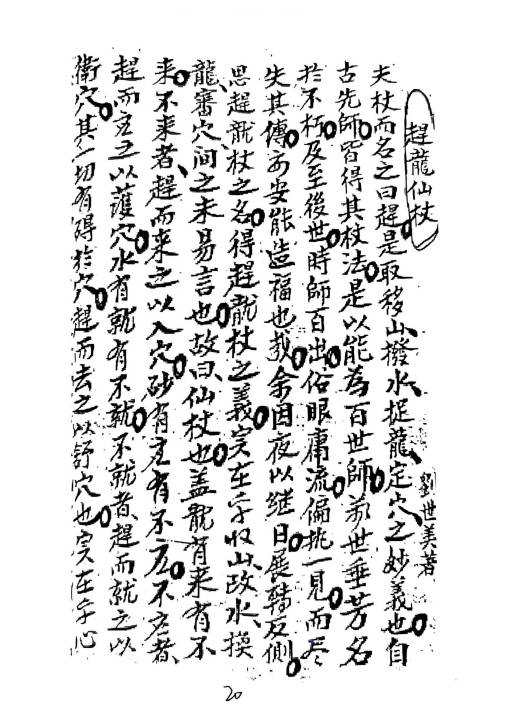 趕龍仙杖
劉世美著
夫杖而名之曰趕是取移山、撥水、捉龍、定穴之妙義也自
古先師皆得其杖法是以能為百世師萬世垂芳名
於不朽及至後世時師百出俗眼庸流偏執一見而尽
失其傳安能造福也哉余因夜以继日展轉反側
思趕龍杖之名得趕龍杖之義实在乎收山、改水、換
龍、審穴、间之未易言也故曰、仙杖也盖龍有来有不
来不来者、趕而来之以入穴砂有左有不左不左者、
趕而左之以護穴水有就有不就不就者、趕而就之以
衛穴其一切有碍於穴趕而去之以舒穴也实在乎心
20